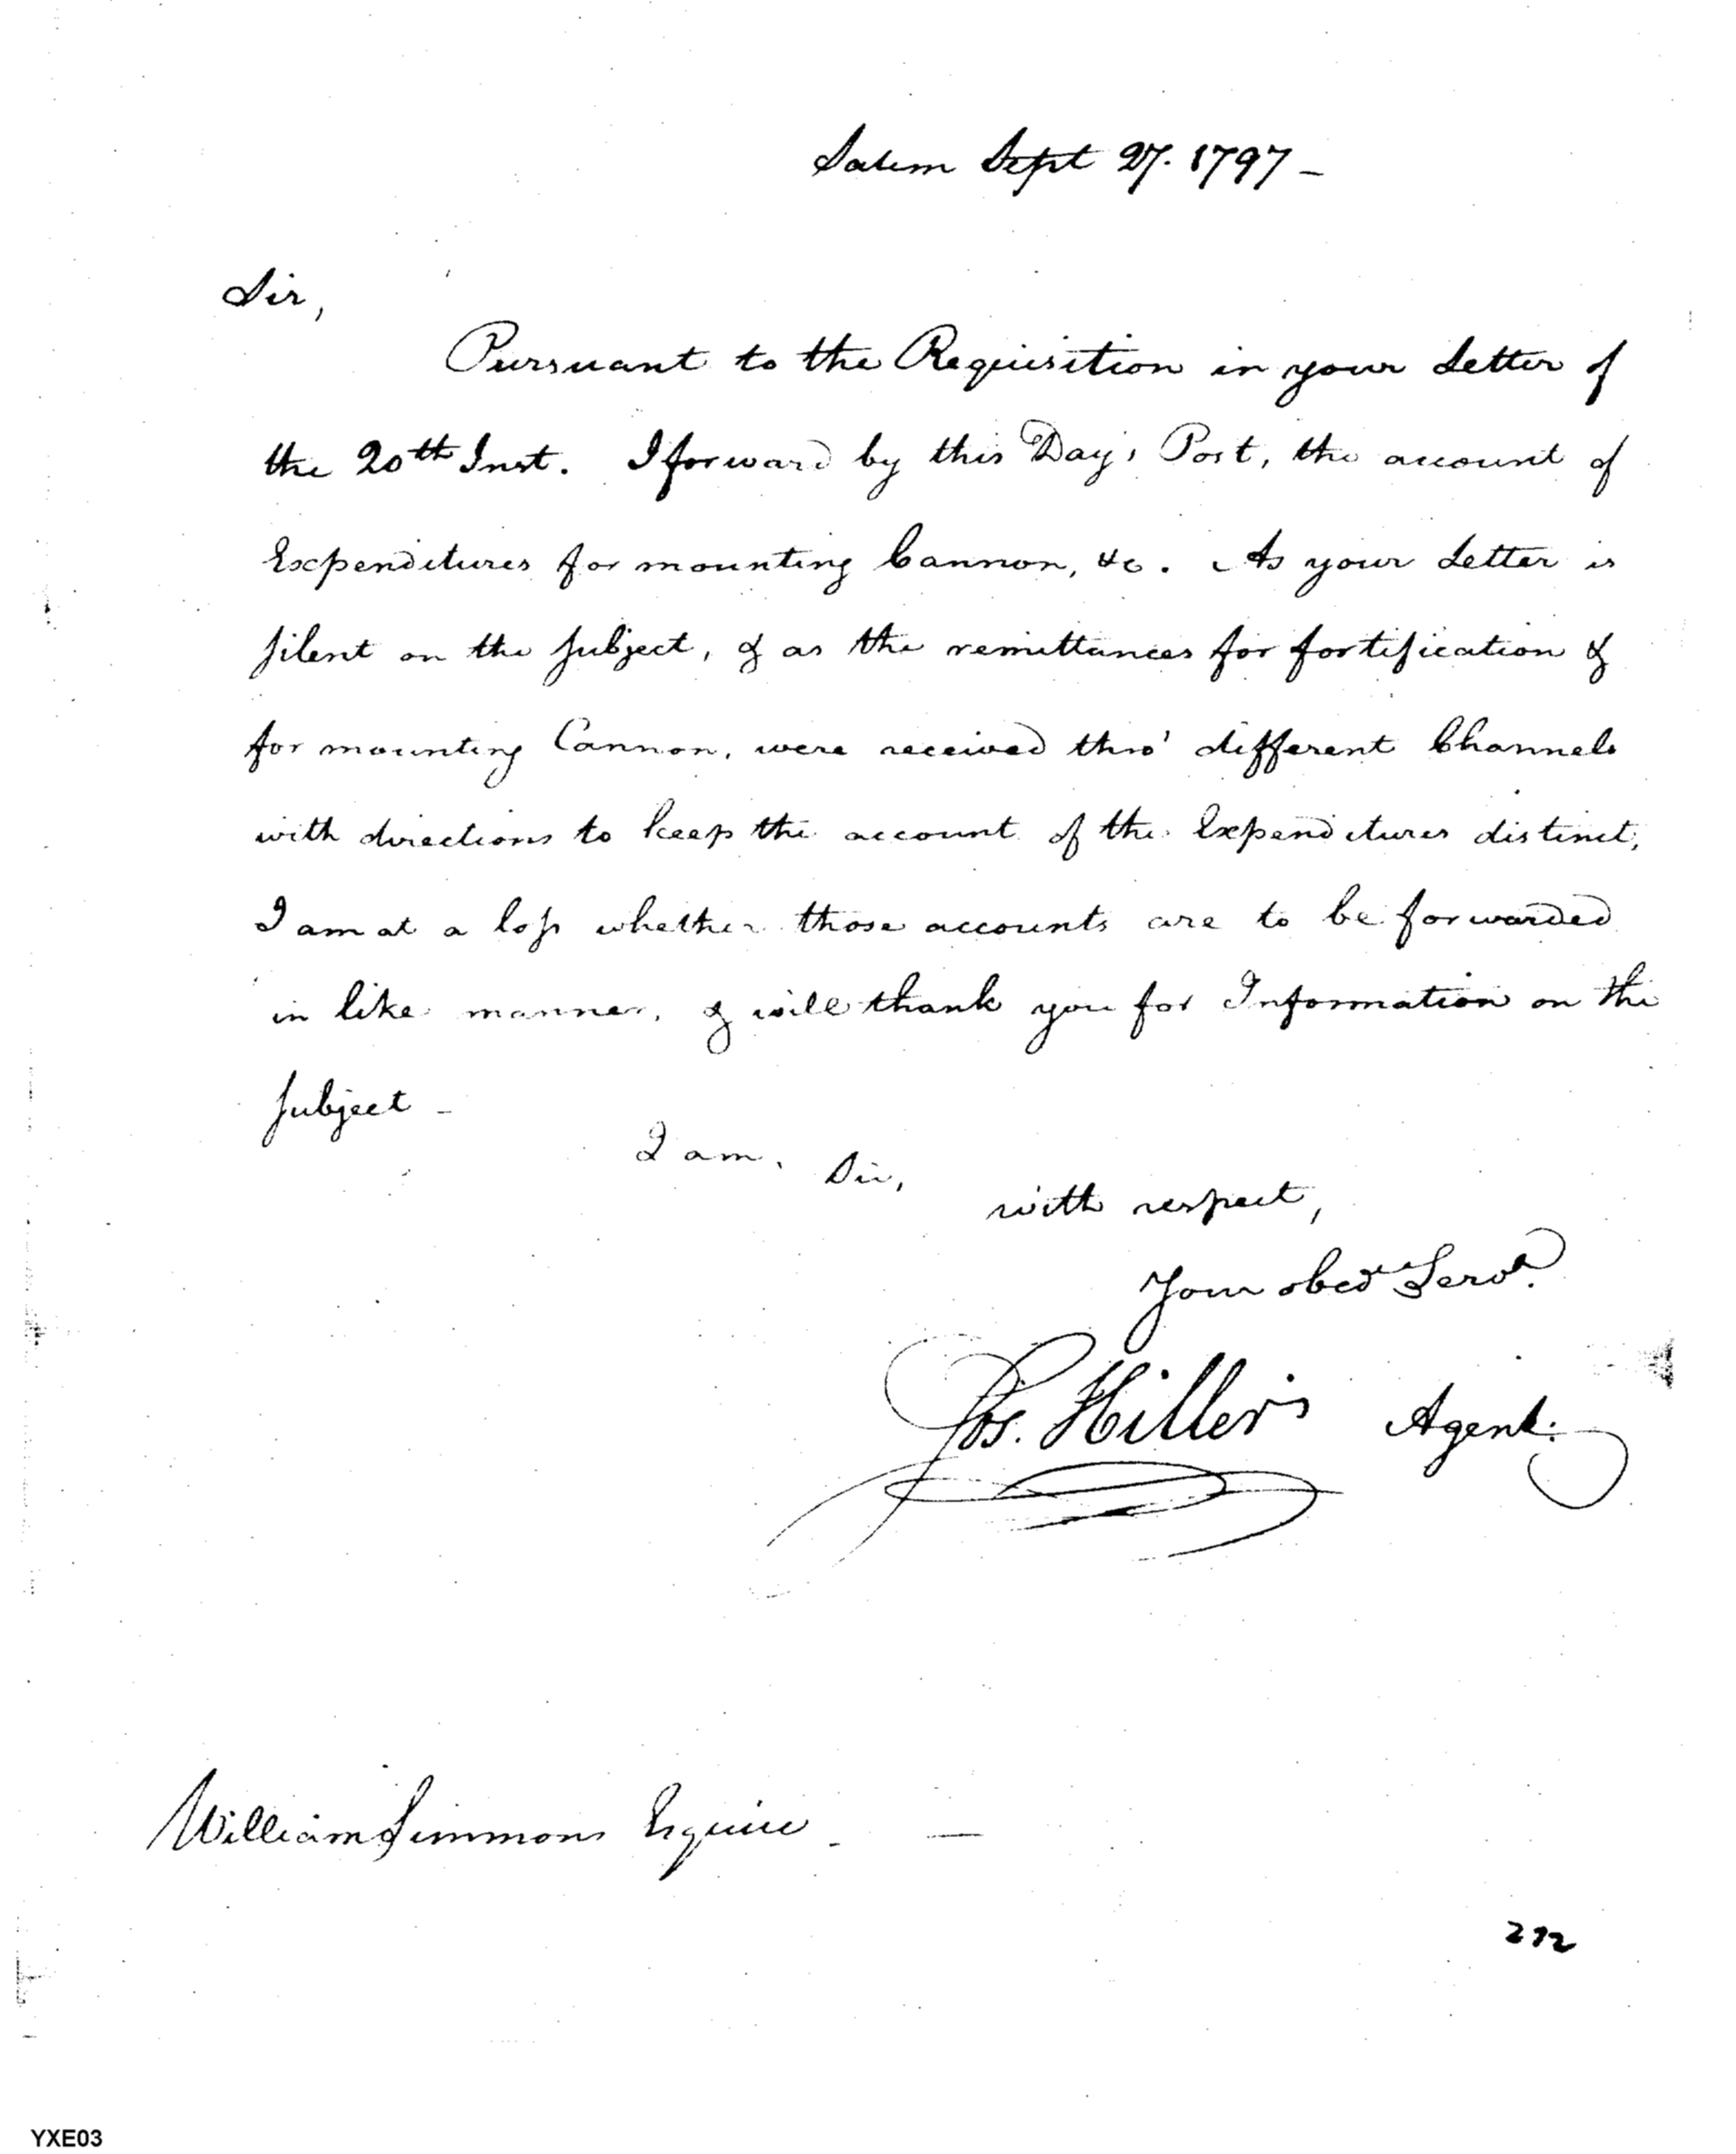 Salem Sept 27. 1797 -
Sir,
Pursuant to the Requisition in your Letter of
the 20th Inst. I forward by this Day's Post, the account of
Expenditures for mounting Cannon, &c. As your Letter is
silent on the subject, & as the remittances for fortification &
for mounting Cannon, were received thro' different Channels
with directions to keep the account of the Expenditures distinct,
I am at a loss whether those accounts are to be forwarded
in like manner, & will thank you for Information on the
subject -
I am, Sir,
with respect,
Your obedt Servt.
Jos. Hiller Agent.
William Simmons Esquire -
272
YXE03